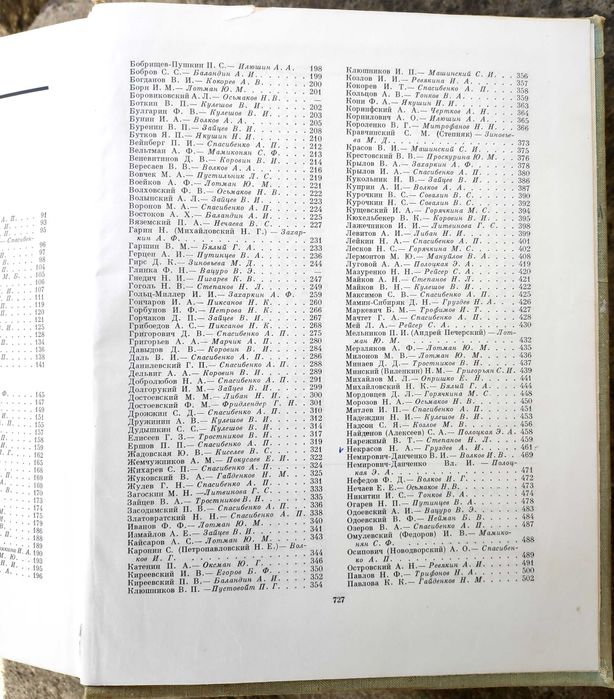 91
93
96
97
104
105
134
136
138
141
145
147
151
152
154
156
157
159
160
162
195
196
Бобрищев-Пушкин П. С.— Илюшин А. А. 198
Бобров С. С.— Баландин А. И. 199
Богданов В. И.— Кокорев А. В. 200
Борн И. М.— Лотман Ю. М. 201
Боровиковский А. Л.— Осьмаков Н. В.
Боткин В. П.— Кулешов В. И. 202
Булгарин Ф. В.— Кулешов В. И. 203
Бунин И. А.— Волков А. А. 205
Буренин В. П.— Зайцев В. И. 208
Бутков Я. П.— Якушин Н. И. 210
Вейнберг П. И.— Спасибенко А. П. 212
Вельтман А. Ф.— Мамиконян С. Ф. 213
Веневитинов Д. В.— Коровин В. И. 214
Вересаев В. В.— Волков А. А. 216
Вовчек М. А.— Пустильник Л. С. 219
Воейков А. Ф.— Лотман Ю. М. 221
Волховский Ф. В.— Осьмаков Н. В. 222
Волынский А. Л.— Зайцев В. И. 223
Воронов М. А.— Спасибенко А. П. 224
Востоков А. Х.— Баландин А. И. 225
Вяземский П. А.— Нечаева В. С. 227
Гарин Н. (Михайловский Н. Г.) — Зазар-
кин А. Ф. 231
Гаршин В. М.— Бялый Г. А. 233
Герцен А. И.— Путинцев В. А. 236
Гирс Д. К.— Зиновьева М. Д. 244
Глинка Ф. Н.— Вацуро В. Э.
Гнедич Н. И.— Пигарев К. В. 247
Гоголь Н. В.— Степанов Н. Л. 249
Гольц-Миллер И. И.— Зазаркин А. Ф. 259
Гончаров И. А.— Пиксанов Н. К. 260
Горбунов И. Ф.— Петрова Н. К. 266
Горчаков Д. П.— Зайцев В. И. 267
Грибоедов А. С.— Пиксанов Н. К. 268
Григорович Д. В.— Спасибенко А. П. 275
Григорьев А. А.— Марчик А. П. 280
Давыдов Д. В.— Коровин В. И. 284
Даль В. И.— Спасибенко А. П. 286
Данилевский Г. П.— Спасибенко А. П. 288
Дельвиг А. А.— Коровин В. И. 289
Добролюбов Н. А.— Спасибенко А. П. 291
Долгорукий И. М.— Зайцев В. И. 299
Достоевский М. М.— Либан Н. И. 300
Достоевский Ф. М.— Фридлендер Г. Н. 301
Дрожжин С. Д.— Спасибенко А. П. 310
Дружинин А. В.— Кулешов В. И. 312
Дудышкин С. С.— Кулешов В. И. 314
Елисеев Г. З.— Тростников В. Н. 317
Ершов П. П.— Спасибенко А. П. 319
Жадовская Ю. В.— Киселев В. С. 321
Жемчужников А. М.— Покусаев Е. И. 322
Жихарев С. П.— Спасибенко А. П. 324
Жуковский В. А.— Гайденков Н. М. 325
Жулев Г. Н.— Спасибенко А. П. 331
Загоскин М. Н.— Литвинова Г. С. 333
Зайцев В. А.— Тростников В. Н. 335
Засодимский П. В.— Спасибенко А. П. 336
Златовратский Н. Н.— Спасибенко А. П. 338
Иванов Ф. Ф.— Лотман Ю. М. 340
Измайлов А. Е.— Зайцев В. И. 341
Кайсаров А. С.— Лотман Ю. М. 343
Каронин С. (Петропавловский Н. Е.) — Вол-
ков И. Г. 344
Катенин П. А.— Оксман Ю. Г. 346
Киреевский И. В.— Егоров Б. Ф. 350
Киреевский П. В.— Баландин А. И. 352
Клюшников В. П.— Пустовойт П. Г. 354
Клюшников И. П.— Машинский С. И. 356
Козлов И. И.— Ревякин И. А. 357
Кокорев И. Т.— Спасибенко А. П. 358
Кольцов А. В.— Тонков В. А. 359
Кони Ф. А.— Якушин Н. И. 363
Коринфский А. А.— Чертков А. Н. 364
Корнилович А. О.— Илюшин А. А. 365
Короленко В. Г.— Митрофанов Н. Н. 366
Кравчинский С. М. (Степняк) — Зиновье-
ва М. Д. 373
Красов В. И.— Машинский С. И. 375
Крестовский В. В.— Проскурина Ю. М. 376
Крылов В. А.— Зазаркин А. Ф. 378
Крылов И. А.— Спасибенко А. П. 380
Кукольник Н. В.— Зайцев В. И. 386
Куприн А. И.— Волков А. А. 387
Курочкин В. С.— Совалин В. С. 390
Курочкин Н. С.— Совалин В. С. 392
Кущевский И. А.— Горячкина М. С. 394
Кюхельбекер В. К.— Коровин В. И. 395
Лажечников И. И.— Литвинова Г. С. 398
Левитов А. И.— Либан Н. И. 399
Лейкин Н. А.— Спасибенко А. П. 401
Лесков Н. С.— Горячкина М. С. 402
Лермонтов М. Ю.— Мануйлов В. А. 408
Луговой А. А.— Полоцкая Э. А. 419
Мазуренко Н. Н.— Рейсер С. А. 420
Майков А. Н.— Степанов Н. Л. 421
Майков В. Н.— Кулешов В. И. 422
Максимов С. В.— Спасибенко А. П. 425
Мамин-Сибиряк Д. Н.— Груздев А. И. 426
Маркевич Б. М.— Трофимов И. Т. 427
Мачтет Г. А.— Спасибенко А. П. 428
Мей Л. А.— Рейсер С. А. 430
Мельников П. И. (Андрей Печерский) — Лот-
ман Ю. М. 432
Мерзляков А. Ф.— Лотман Ю. М. 435
Милонов М. В.— Лотман Ю. М. 436
Минаев Д. Д.— Тростников В. Н. 437
Минский (Виленкин) Н. М.— Григорьян С. И. 439
Михайлов М. Л.— Опришко Е. Н. 441
Михайловский Н. К.— Бялый Г. А. 444
Мордовцев Д. Л.— Горячкина М. С. 448
Морозов Н. А.— Осьмаков Н. В. 450
Мятлев И. П.— Спасибенко А. П. 451
Надеждин Н. И.— Кулешов В. И. 453
Надсон С. Я.— Козлов М. В. 456
Найденов (Алексеев) С. А.— Полоцкая Э. А. 458
Нарежный В. Т.— Степанов Н. Л. 459
Некрасов Н. А.— Груздев А. И. 461
Немирович-Данченко В. И.— Волков И. В. 469
Немирович-Данченко Вл. И. — Полоц-
кая Э. А. 471
Нефедов Ф. Д.— Волков Н. Г. 472
Нечаев Е. Е.— Осьмаков Н. В. 473
Никитин И. С.— Тонков В. А. 474
Огарев Н. П.— Путинцев В. А. 478
Одоевский А. И.— Вацуро В. Э. 483
Одоевский В. Ф.— Нейман Б. В. 484
Озеров В. А.— Спасибенко А. П. 487
Омулевский (Федоров) И. В.— Мамико-
нян С. Ф. 488
Осипович (Новодворский) А. О.— Спасибен-
ко А. П. 489
Островский А. Н.— Ревякин А. И. 491
Павлов Н. Ф.— Трифонов Н. А. 500
Павлова К. К.— Гайденков Н. М. 502
727